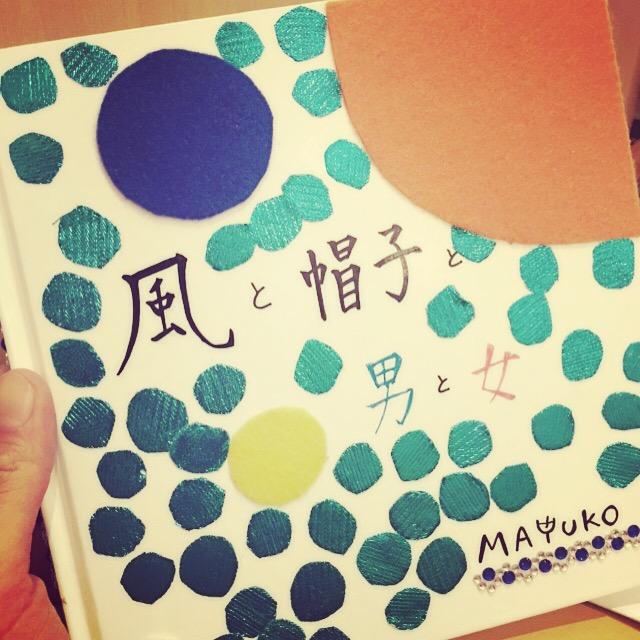 風と帽子と
男と女
MAYUKO